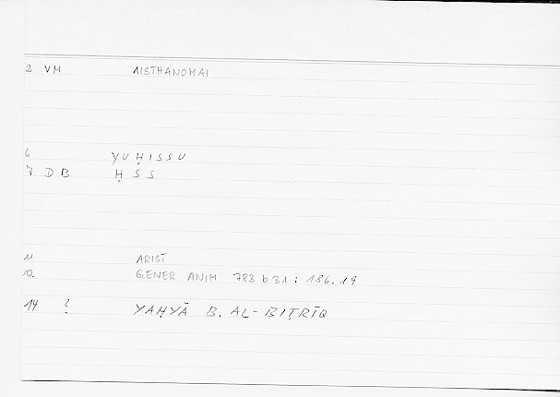 3 VM AISTHANOMAI
6 YUḤISSU
7 DB ḤSS
11 ARIST
12 GENER ANIM 783 b 31 : 186.19
14 ? YAḤYĀ B. AL-BIṬRĪQ